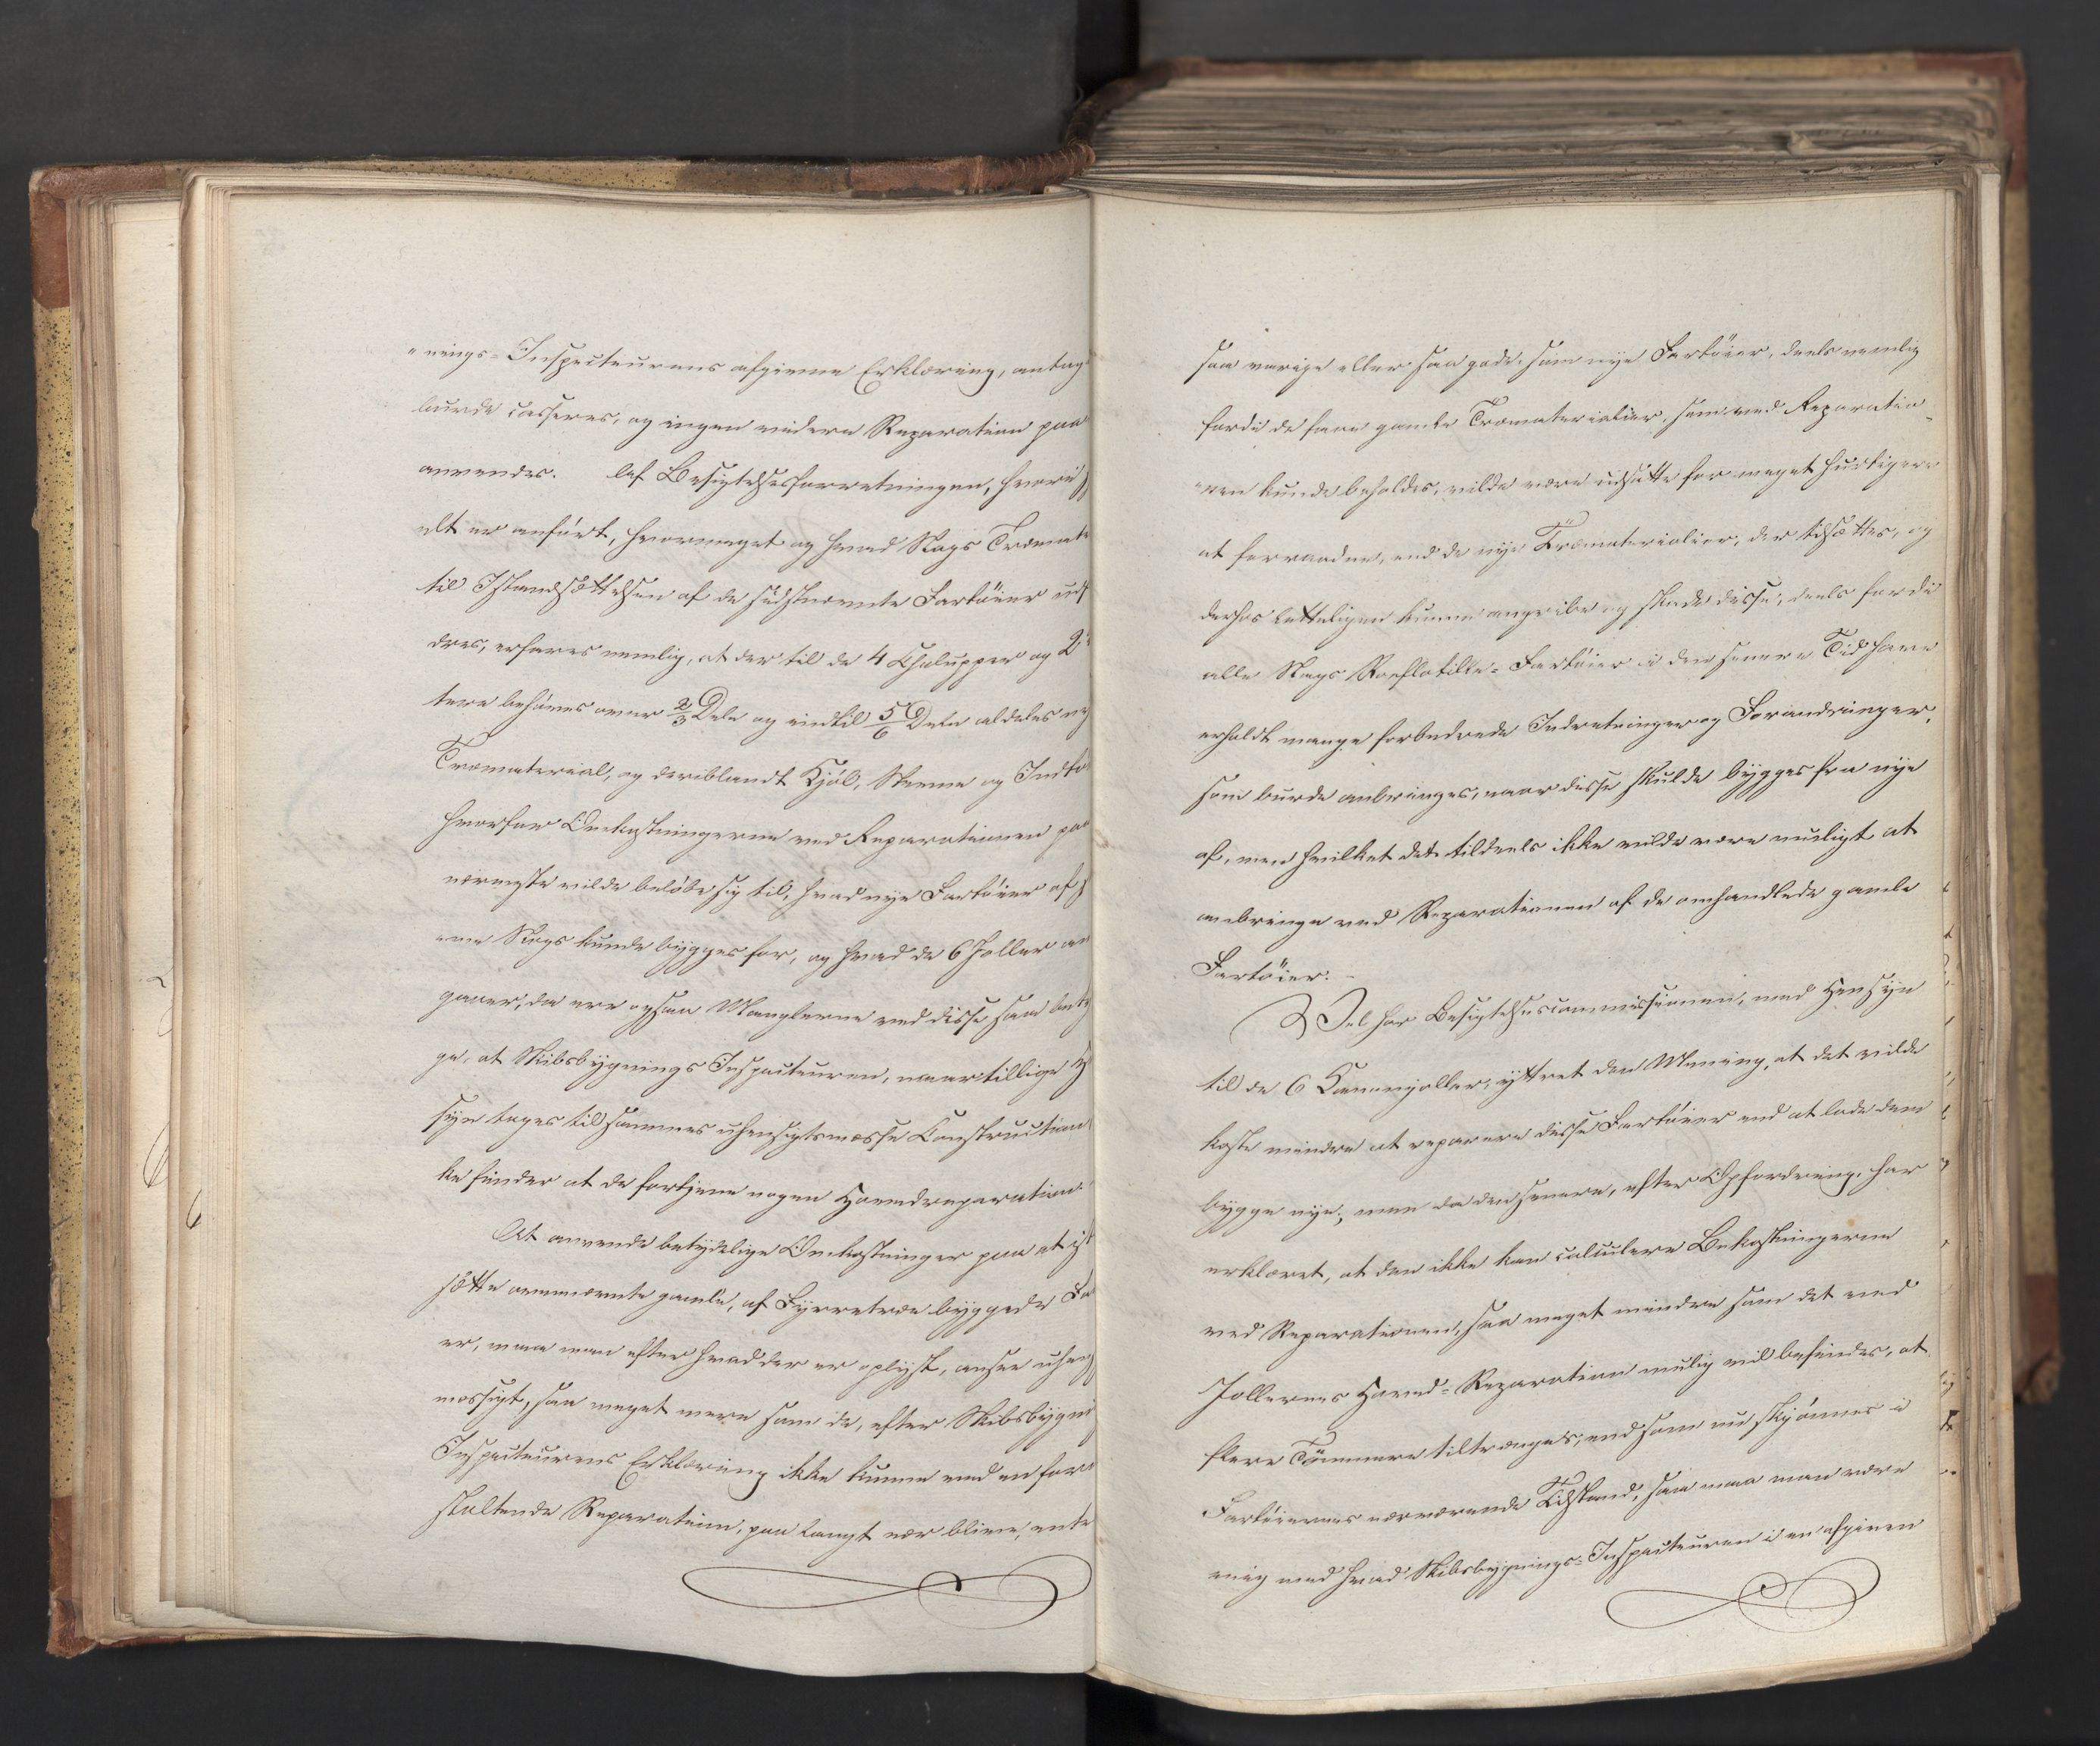 "nings-Inspecteurens afgivne Erklæring, antag
burde casseres, og ingen videre Reparation paa
anvendes. Af Besigtelsesforretningen, hvori
alt er anført, hvormeget og hvad Slags Træmate
til Istandsættelsen af de sidstnævnte Fartøier ud
dres, erfares nemlig, at der til de 4 Chalupper og 2
tere behøves over 2/3 Dele og indtil 5/6 Dele aldeles ny
Træmaterial, og deriblandt Kjøl, Stevne og Indho
hvorfor Omkostningerne ved Reparationen paa
nærmeste vilde beløbe sig til, hvad nye Fartøier af
me Slags kunde bygges for, og hvad de 6 Joller an
gaaer, da ere ogsaa Manglerne ved disse saa bety
ge, at Skibsbygnings Inspecteuren, naar tillige H
syn tages til sammes uhensigtsmæsse Construction
ke finder at de fortjene nogen Hovedreparation.
At anvende betydelige Omkostninger paa at ist
sætte ovennævnte gamle, af Fyrretræe byggede Fa
er, maa man efter hvad der er oplyst, ansee uhen
mæssigt, saa meget mere som de, efter Skibsbygni
Inspecteurens Erklæring ikke kunne ved en fore
staltende Reparation, paa langt nær blive, ente
saa varige eller saa gode, som nye Fartøier, deels nemlig
fordi de faae gamle Træmaterialier, som ved Reparatio-
"nen kunde beholdes, vilde være udsatte for meget hurtigere
at forraadne, end de nye Træmaterialier, der tilsættes, og
derhos letteligen kunne angribe og skade disse, deels fordi
alle Slags Roeflotille-Fartøier i den senere Tid have
erholdt mange forbedrede Indretninger og Forandringer,
som burde anbringes, naar disse skulde bygges fra nye
af, men hvilket det tildeels ikke vilde være muligt at
anbringe ved Reparationen af de omhandlede gamle
Fartøier. -
Vel har Besigtelsescommissionen, med Hensyn
til de 6 Kanonjoller, yttret den Mening, at det vilde
koste mindre at reparere disse Fartøier end at lade dem
bygge nye; men da den senere, efter Opfordring, har
erklæret, at den ikke kan calculere Bekostningerne
ved Reparationen, saa meget mindre som det ved
Jollernes Hoved-Reparation mulig vil befindes, at
flere Tømmere tiltrænges, end som nu skjønnes i
Fartøiernes nærværende Tilstand, saa maa man være
enig med hvad Skibsbygnings-Inspecteuren i en afgiven